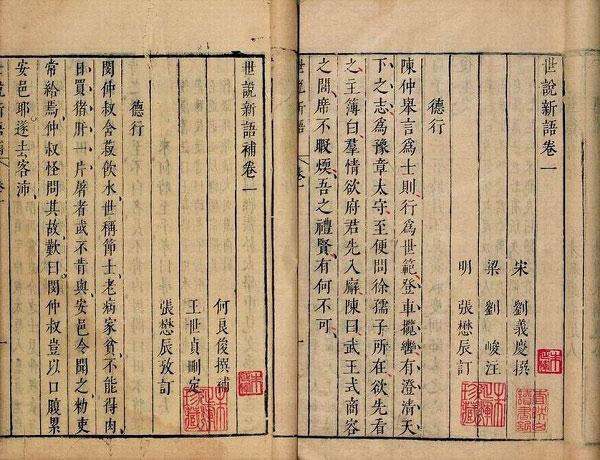 世說新語卷一
宋 劉義慶撰
梁 劉峻注
明 張懋辰訂
德行
陳仲舉言爲士則行爲世範登車攬轡有澄清天
下之志爲豫章太守至便問徐孺子所在欲先看
之主簿白羣情欲府君先入廨陳曰武王式商容
之閭席不暇煖吾之禮賢有何不可
世說新語 卷一
世說新語補卷一
何良俊撰補
王世貞刪定
張懋辰攷訂
德行
閔仲叔含菽飲水世稱節士老病家貧不能得肉
日買猪肝一片屠者或不肯與安邑令聞之勑吏
常給焉仲叔怪問其故歎曰閔仲叔豈以口腹累
安邑耶遂去客沛
世說新語補 卷一